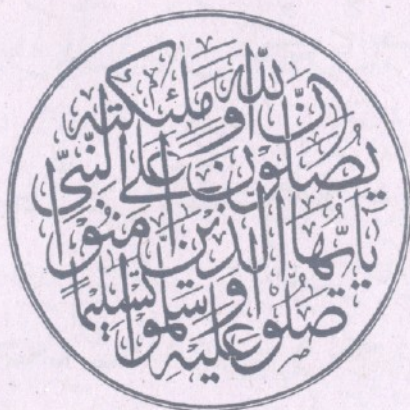 ان الله وملئكته
يصلون على النبي
يايها الذين امنوا
صلوا عليه وسلموا تسليما